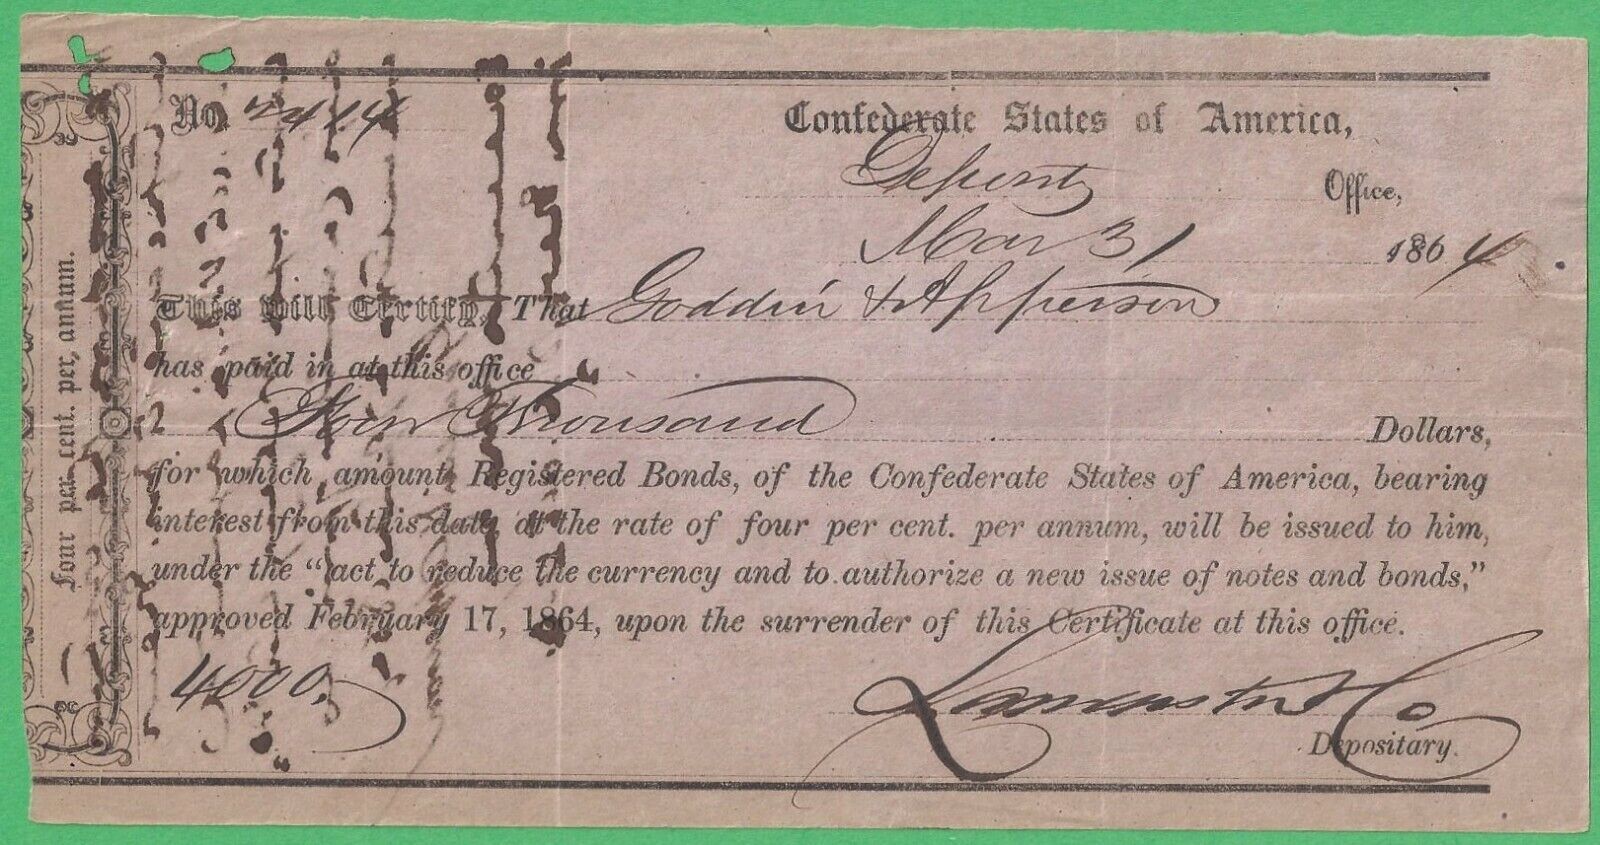 No. 2414
Confederate States of America,
Deposit Office,
Mar 31 1864
This will Certify, That Goddin & Apperson
has paid in at this office
Four Thousand Dollars,
for which amount Registered Bonds, of the Confederate States of America, bearing
interest from this date, at the rate of four per cent. per annum, will be issued to him,
under the "act to reduce the currency and to authorize a new issue of notes and bonds,"
approved February 17, 1864, upon the surrender of this Certificate at this office.
4000.
Lancaster & Co
Depositary.
Four per cent. per, annum.